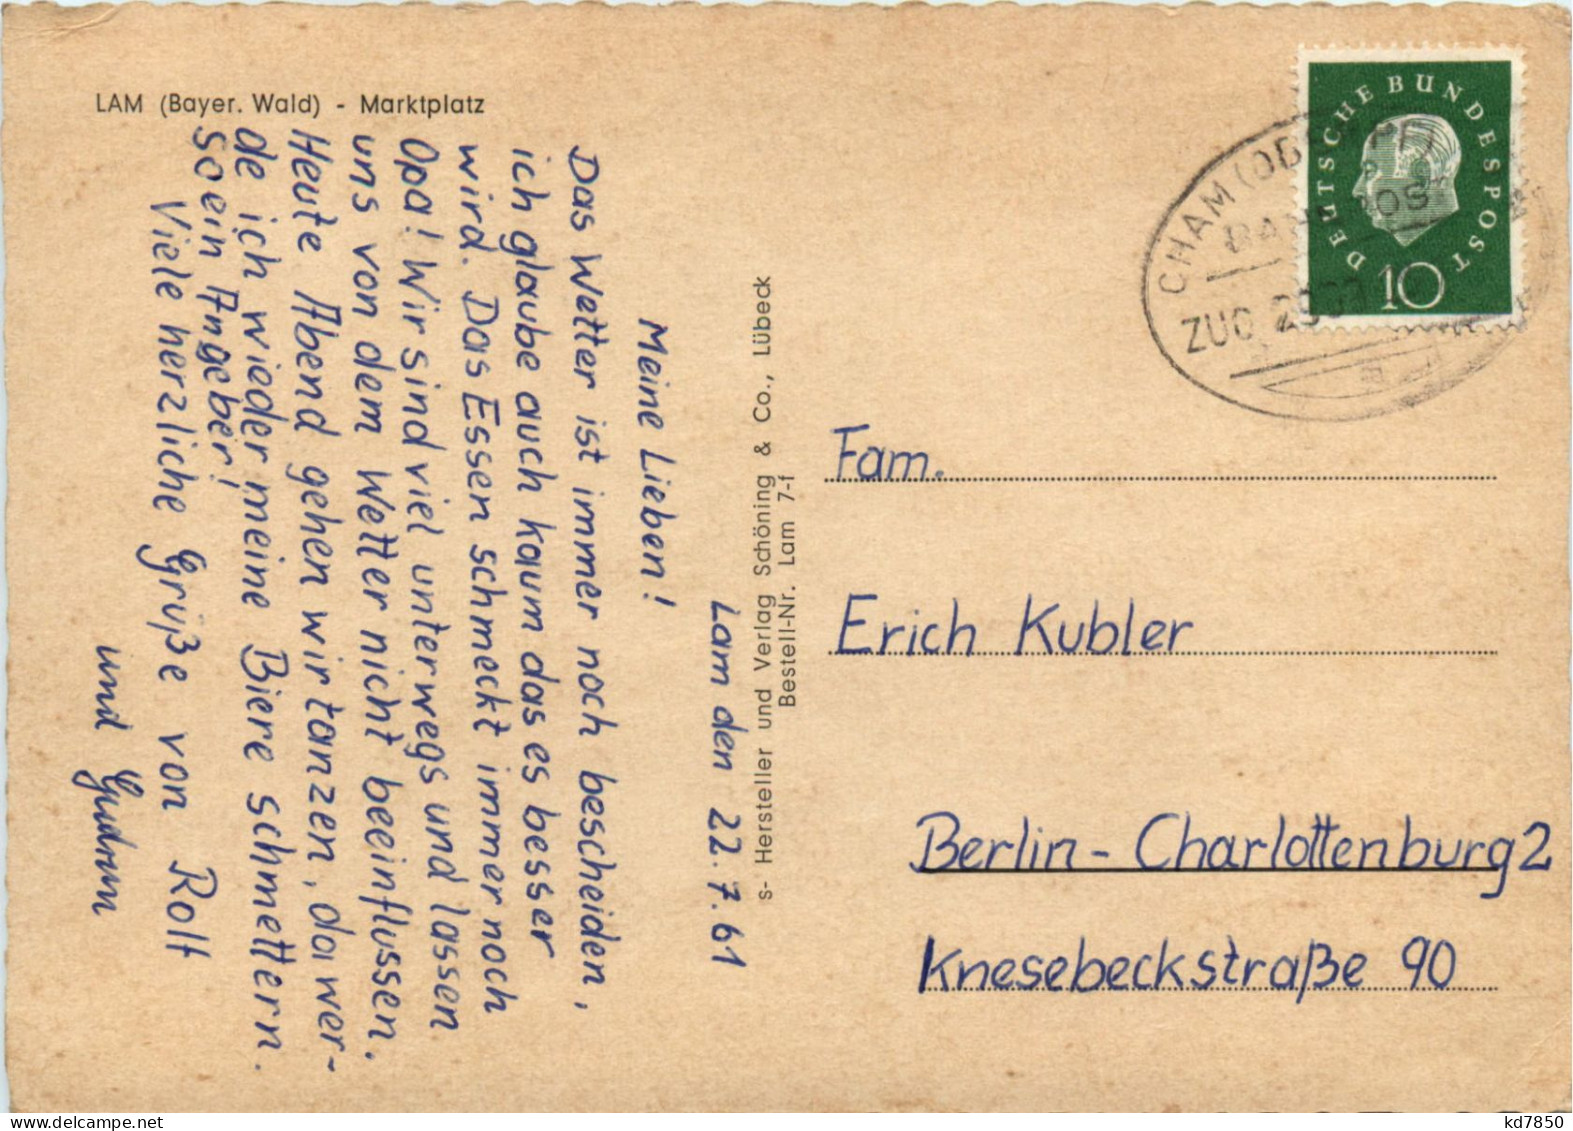 LAM (Bayer. Wald) - Marktplatz
Lam den 22.7.61
Meine Lieben!
Das Wetter ist immer noch bescheiden,
ich glaube auch kaum das es besser
wird. Das Essen schmeckt immer noch
Opa! Wir sind viel unterwegs und lassen
uns von dem Wetter nicht beeinflussen.
Heute Abend gehen wir tanzen, da wer-
de ich wieder meine Biere schmettern.
So ein Angeber!
Viele herzliche Grüße von Rolf
und Gudrun
s- Hersteller und Verlag Schöning & Co., Lübeck
Bestell-Nr. Lam 7-f
DEUTSCHE BUNDESPOST
10
CHAM (OB
ZUG
Fam.
Erich Kubler
Berlin - Charlottenburg 2
Knesebeckstraße 90
kd7850